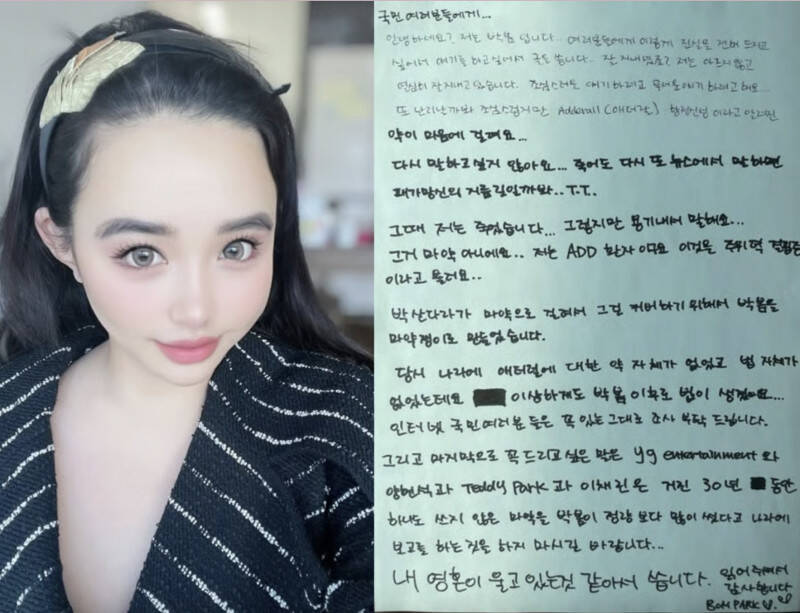 국민 여러분들에게...
안녕하세요? 저는 박봄 입니다.. 여러분들에게 이렇게 진심을 전해 드리고
싶어서 얘기를 하고싶어서 글을 씁니다. 잘 지내셨죠? 저는 아프지 않고
열심히 잘지내고 있습니다. 조심스러운 얘기 하려고 무서운얘기 하려고해요..
또 난리날까봐 조심스럽지만 Adderall (애더랄) 향정신성 이라고 알려진
약이 마음에 걸려요...
다시 말하고 싶지 않아요... 죽어도 다시 또 뉴스에서 말하면
패가망신의 지름길일까봐.. T.T.
그때 저는 죽었습니다... 그렇지만 용기내서 말해요...
그거 마약 아니에요.. 저는 ADD 환자 이구요 이것은 주위력 결핍증
이라고 불려요..
박산다라가 마약으로 걸려서 그걸 커버하기 위해서 박봄을
마약쟁이로 만들었습니다.
당시 나라에 애터럴에 대한 약 자체가 없었고 법 자체가
없었는데요 이상하게도 박봄 이후로 법이 생겼어요...
인터넷 국민 여러분 들은 꼭 있는 그대로 조사 부탁 드립니다.
그리고 마지막으로 꼭 드리고 싶은 말은 yg entertainment 와
양현석과 Teddy Park 과 이채린은 거진 30년 동안
하나도 쓰지 않은 마약을 박봄이 정량 보다 많이 썼다고 나라에
보고를 하는것을 하지 마시길 바랍니다...
내 영혼이 울고 있는것 같아서 씁니다. 읽어 주셔서
감사합니다
BOM PARK